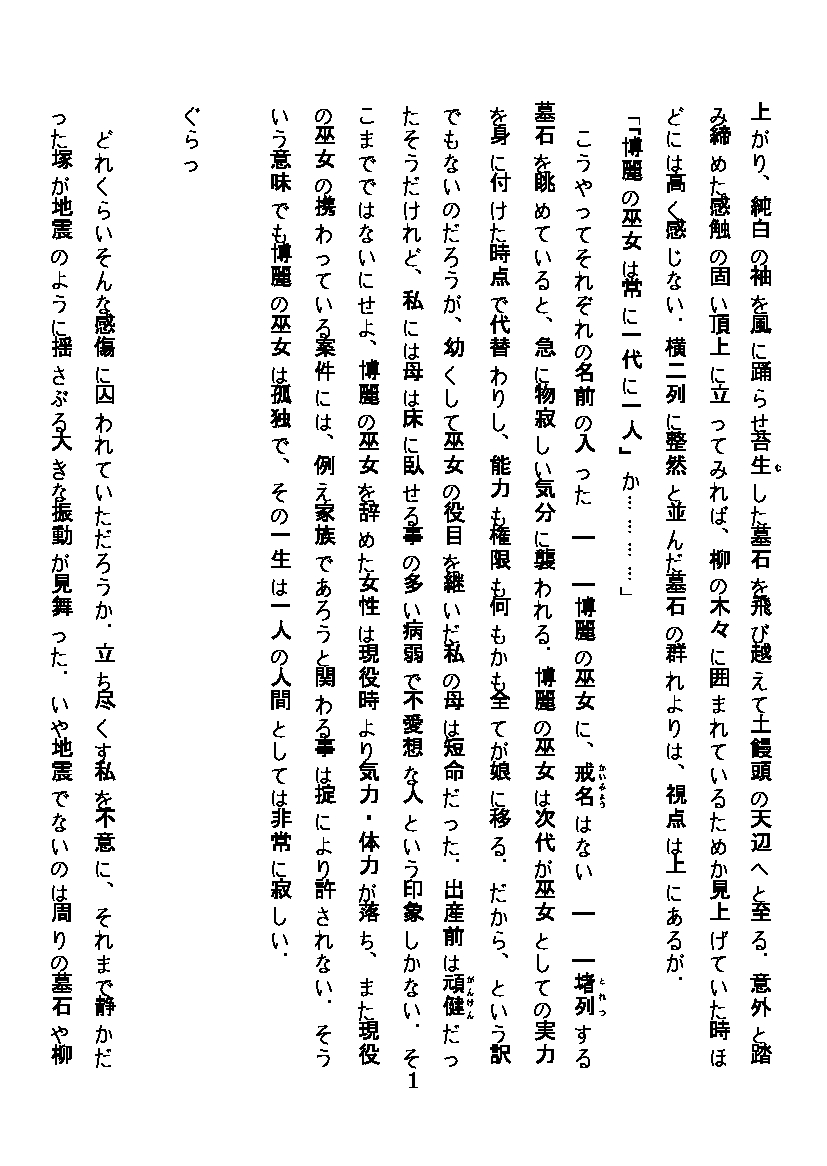 上がり、純白の袖を風に踊らせ苔生した墓石を飛び越えて土饅頭の天辺へと至る．意外と踏
み締めた感触の固い頂上に立ってみれば、柳の木々に囲まれているためか見上げていた時ほ
どには高く感じない．横二列に整然と並んだ墓石の群れよりは、視点は上にあるが．
「『博麗の巫女は常に一代に一人』か…………」
こうやってそれぞれの名前の入った――博麗の巫女に、戒名はない――堵列する
墓石を眺めていると、急に物寂しい気分に襲われる．博麗の巫女は次代が巫女としての実力
を身に付けた時点で代替わりし、能力も権限も何もかも全てが娘に移る．だから、という訳
でもないのだろうが、幼くして巫女の役目を継いだ私の母は短命だった．出産前は頑健だっ
たそうだけれど、私には母は床に臥せる事の多い病弱で不愛想な人という印象しかない．そ
こまでではないにせよ、博麗の巫女を辞めた女性は現役時より気力・体力が落ち、また現役
の巫女の携わっている案件には、例え家族であろうと関わる事は掟により許されない．そう
いう意味でも博麗の巫女は孤独で、その一生は一人の人間としては非常に寂しい．
ぐらっ
どれくらいそんな感傷に囚われていただろうか．立ち尽くす私を不意に、それまで静かだ
った塚が地震のように揺さぶる大きな振動が見舞った．いや地震でないのは周りの墓石や柳
1